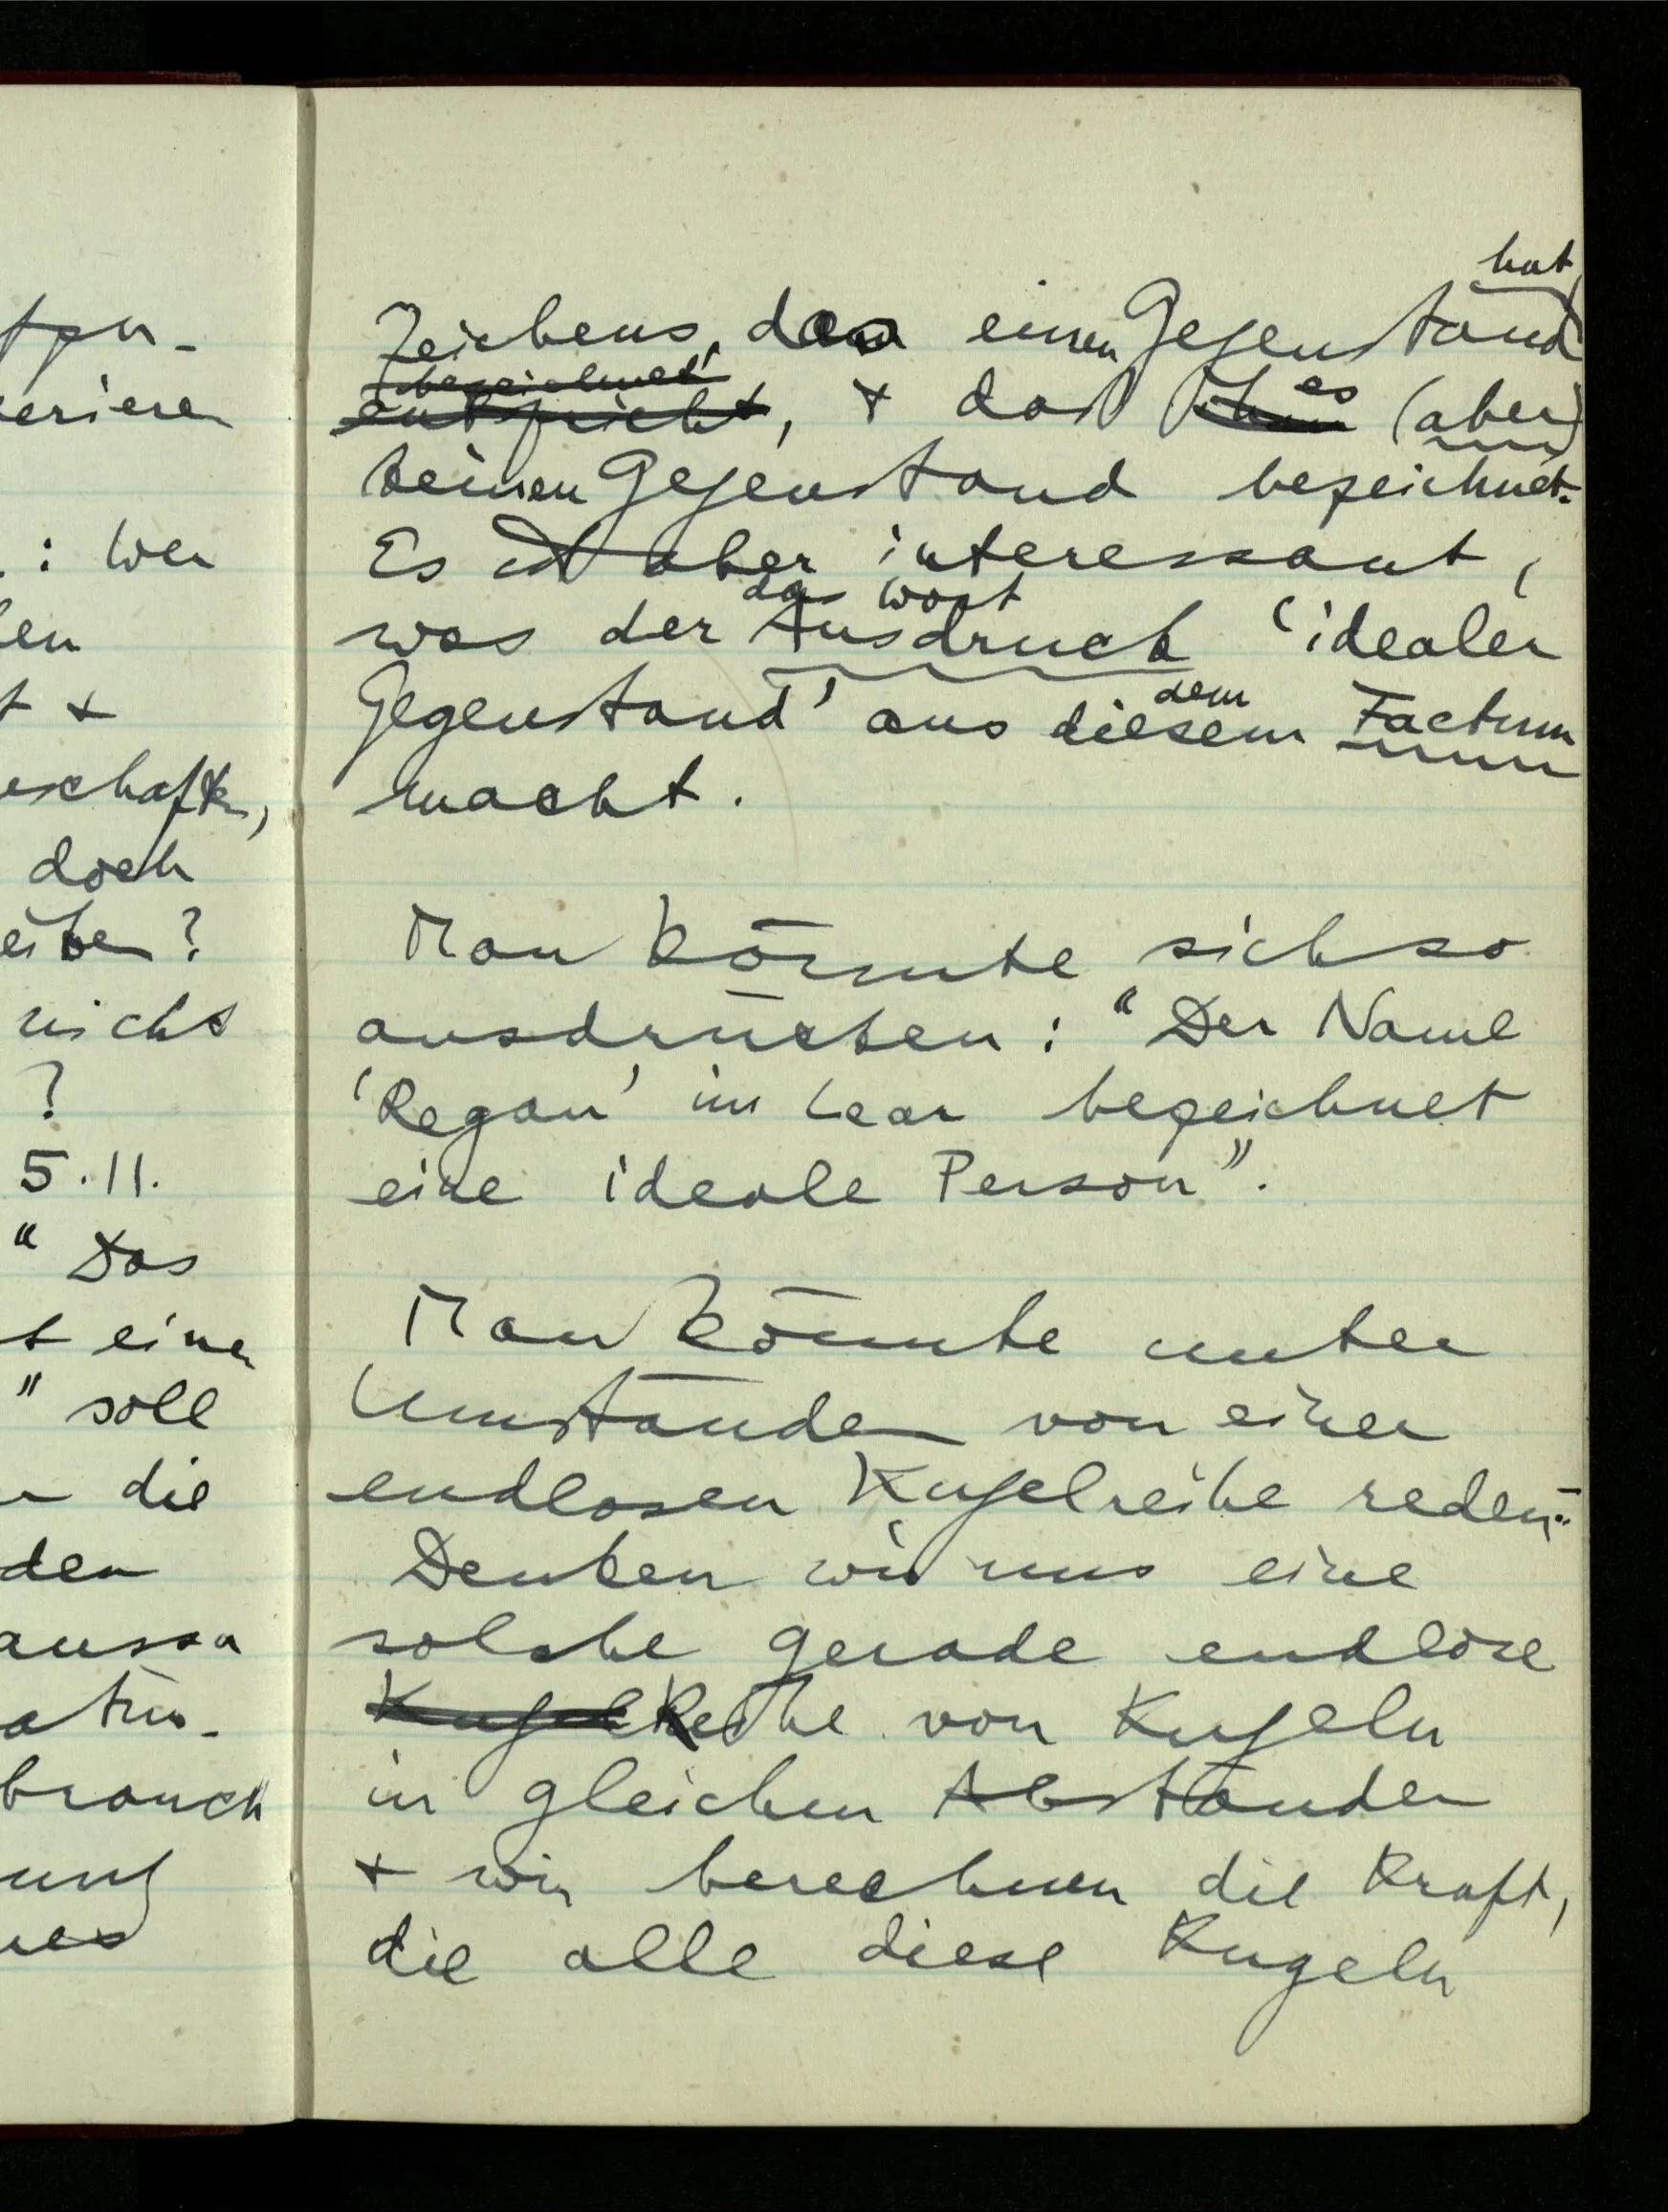 tpu-
erieren
: Wer
en
t +
eschafte,
doch
eibe?
nicht
?
5.11.
“Das
t einen
” soll
die
den
brauch
ung
hat
Zeichens, das einen Gegenstand
bezeichnet
entspricht, + daß ihm es (aber)
keinen Gegenstand bezeichnet.
Es ist aber interessant,
das Wort
was der Ausdruck ‘idealer
dem
Gegenstand’ aus diesem Factum
macht.
Man könnte sich so
ausdrücken: “Der Name
‘Regan’ im Lear bezeichnet
eine ideale Person”.
Man könnte unter
Umständen von einer
endlosen Kugelreihe reden:
Denken wir uns eine
solche gerade endlose
Kugel Reihe von Kugeln
in gleichen Abständen
+ wir berechnen die Kraft,
die alle diese Kugeln